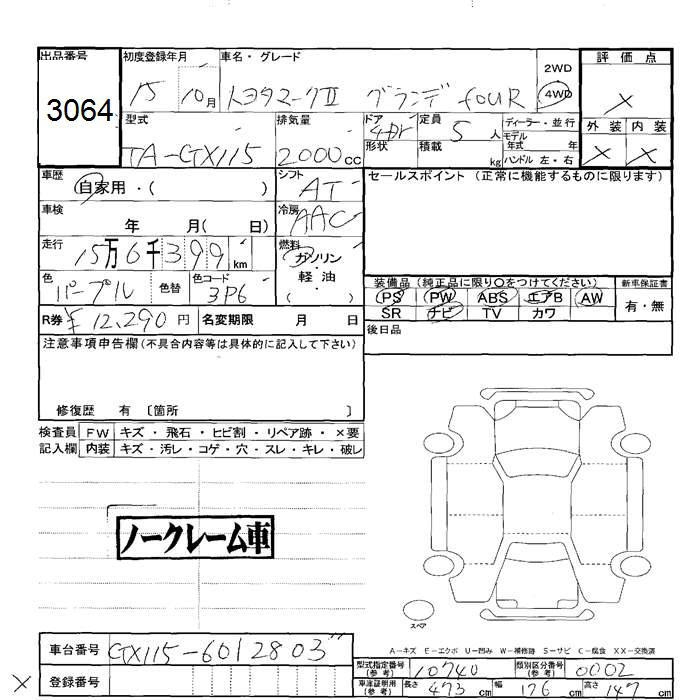 出品番号 初度登録年月 車名・グレード 評価点
3064 15 10月 トヨタマークⅡ グランデ four 2WD 4WD ×
型式 排気量 ドア 4dr 定員 5人 ディーラー・並行 外装 内装
TA-GX115 2000cc 形状 積載 kg モデル年式 年 ハンドル 左・右 × ×
車歴 自家用・( ) シフト AT セールスポイント (正常に機能するものに限ります)
車検 年 月( 日) 冷房 AAC
走行 15万6千399km 燃料 ガソリン・軽油 ( )
色 パープル 色替 色コード 3P6 装備品 (純正品に限り○をつけてください) 新車保証書
PS PW ABS エアB AW 有・無
SR ナビ TV カワ
R券 ¥12,290円 名変期限 月 日 後日品
注意事項申告欄(不具合内容等は具体的に記入して下さい)
修復歴 有 〔箇所 〕
検査員 FW キズ・飛石・ヒビ割・リペア跡・×要
記入欄 内装 キズ・汚レ・コゲ・穴・スレ・キレ・破レ
ノークレーム車
スペア
A-キズ E-エクボ U-凹み W-補修跡 S-サビ C-腐食 XX-交換済
車台番号 GX115-6012803 型式指定番号(参考) 10740 類別区分番号(参考) 0002
× 登録番号 車庫証明用(参考) 長さ 473cm 幅 176cm 高さ 147cm